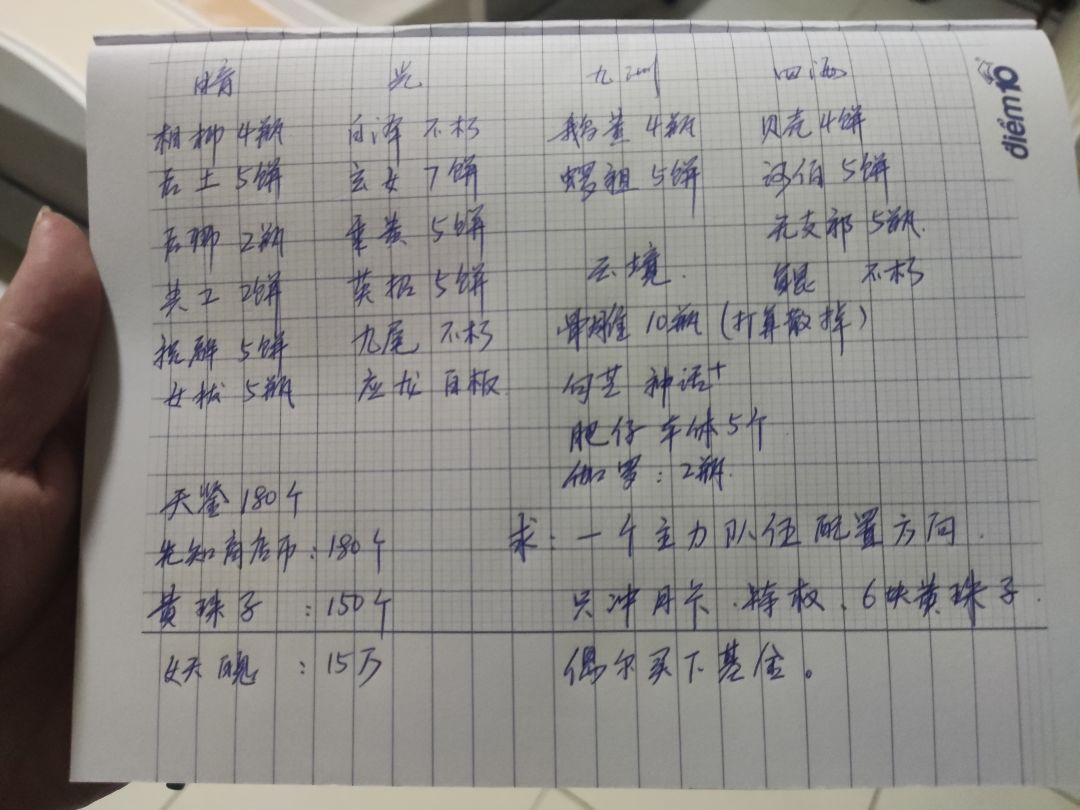 暗 光 九州 四海
相柳 4瓶 白泽 不朽 鹅黄 4瓶 贝壳 4饼
后土 5饼 玄女 7饼 嫘祖 5饼 河伯 5饼
后卿 2瓶 乘黄 5饼 无支祁 5瓶.
共工 2饼 英招 5饼 云境. 不朽
5饼 九尾 不朽 10瓶 (打算散掉)
女拔 5瓶 应龙 白板. 句芒 神话+
肥仔 车休 5个
天鉴 180个 伽罗: 2瓶.
先知商店币: 180个 求: 一个主力队伍配置方向.
黄珠子 : 150个 只冲月卡.特权.6块黄珠子.
: 15万 偶尔买下基金。
điểm10